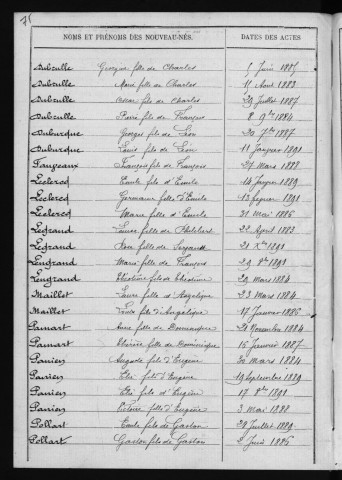 NOMS ET PRÉNOMS DES NOUVEAU-NÉS. DATES DES ACTES
Dubrulle Georgine fille de Charles 5 Juin 1885
Dubrulle Marie fille de Charles 15 Aout 1883
Dubrulle Oscar fils de Charles 29 Juillet 1887
Dubrulle Marie fille de François 8 9bre 1884
Duburque Georges fils de Léon 20 7bre 1887
Duburque Louis fils de Léon 11 Janvier 1891
Fauzeaux François fils de François 27 Mars 1888
Leclercq Emile fils d'Emile 14 Janvier 1889
Leclercq Germaine fille d'Emile 13 février 1891
Leclercq Marie fille d'Emile 31 mai 1886
Legrand Laure fille de Philibert 22 Août 1883
Legrand Rose fille de 21 Xbre 1891
Lengrand Marie fille de François 29 8bre 1891
Lengrand Théotime fils de Théotime 29 Mars 1884
Maillot Laure fille d'Angélique 23 Mars 1884
Maillot Louis fils d'Angélique 17 Janvier 1886
Pamart fille de Dominique 21 Novembre 1884
Pamart fille de Dominique 15 Janvier 1887
Panien Auguste fils d'Eugène 30 mars 1884
Panien Elie fils d'Eugène 19 Septembre 1889
Panien Elie fils d'Eugène 17 8bre 1891
Panien Victoire fille d'Eugène 3 mai 1888
Pollart Emile fils de Gaston 28 Juillet 1889
Pollart Gaston fils de Gaston 2 Juin 1886